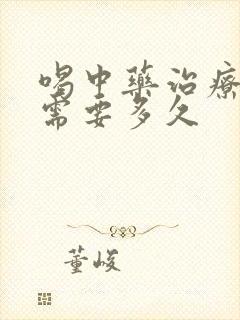 喝中药治疗
需要多久
董峻